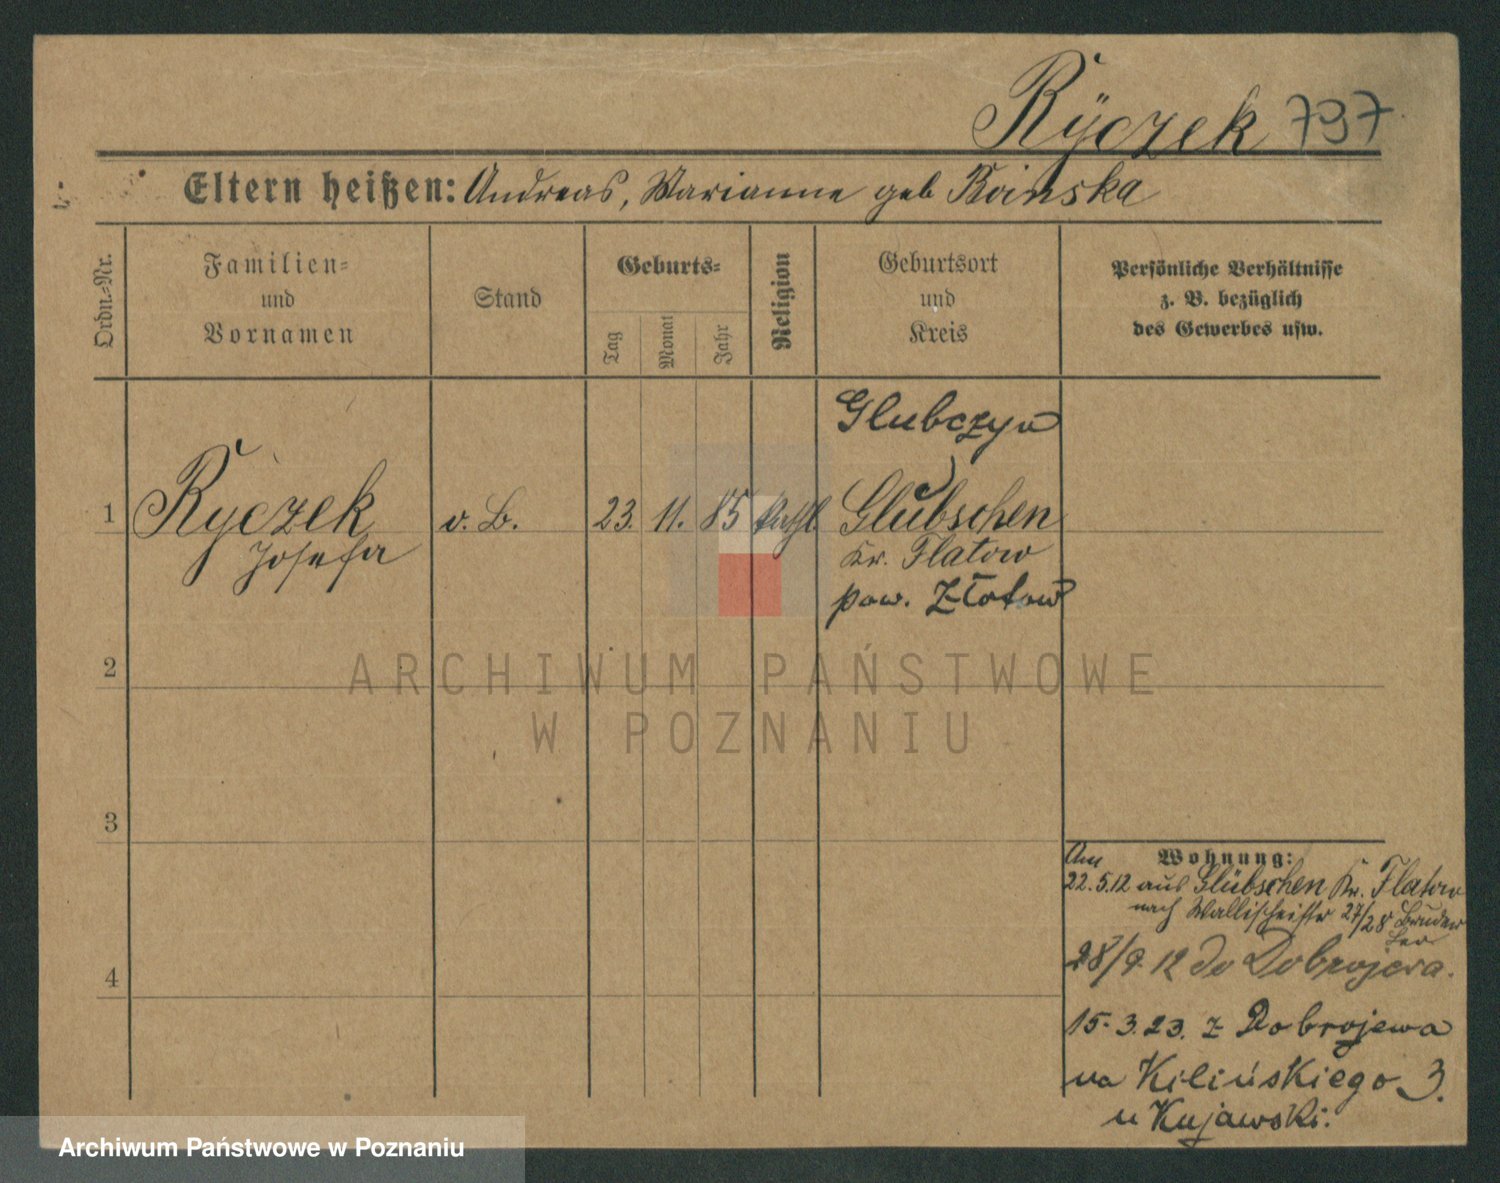 Rÿczek 797
Eltern heißen: Andreas, Marianne geb Koinska
Ordn.-Nr.
Familien- und Vornamen
Stand
Geburts-
Tag
Monat
Jahr
Religion
Geburtsort und Kreis
Persönliche Verhältnisse
z. B. bezüglich
des Gewerbes usw.
Glubczyn
1 Ryczek v. B. 23. 11. 85 kathl Glubschen
Josefa Kr. Flatow
pow. Złotow
ARCHIWUM PAŃSTWOWE
W POZNANIU
2
3
4
Wohnung:
Am
22.5.12 aus Glübschen Kr. Flatow
nach Wallischeistr 27/28 Bruder
28/9.12 do Dobrojewa.
15.3.23. z Dobrojewa
na Kilińskiego 3.
u Kujawski.
Archiwum Państwowe w Poznaniu